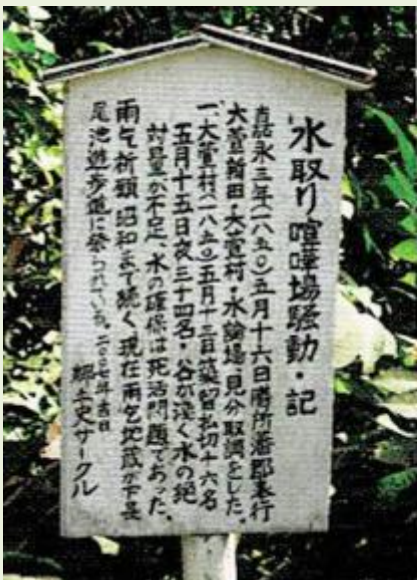 水取り喧嘩場騒動・記
嘉永三年(一八五〇)五月十六日膳所藩郡奉行
大萱新田・大萱村・水論場見分取調をした。
一、大萱村(一八五〇)五月十三日築留払切十六名
五月十五日夜三十四名・谷が深く水の絶
対量が不足、水の確保は死活問題であった、
雨乞祈願、昭和まで続く現在雨乞地蔵が下長
尾池遊歩道に祭られている。二〇〇七年吉日
郷土史サークル